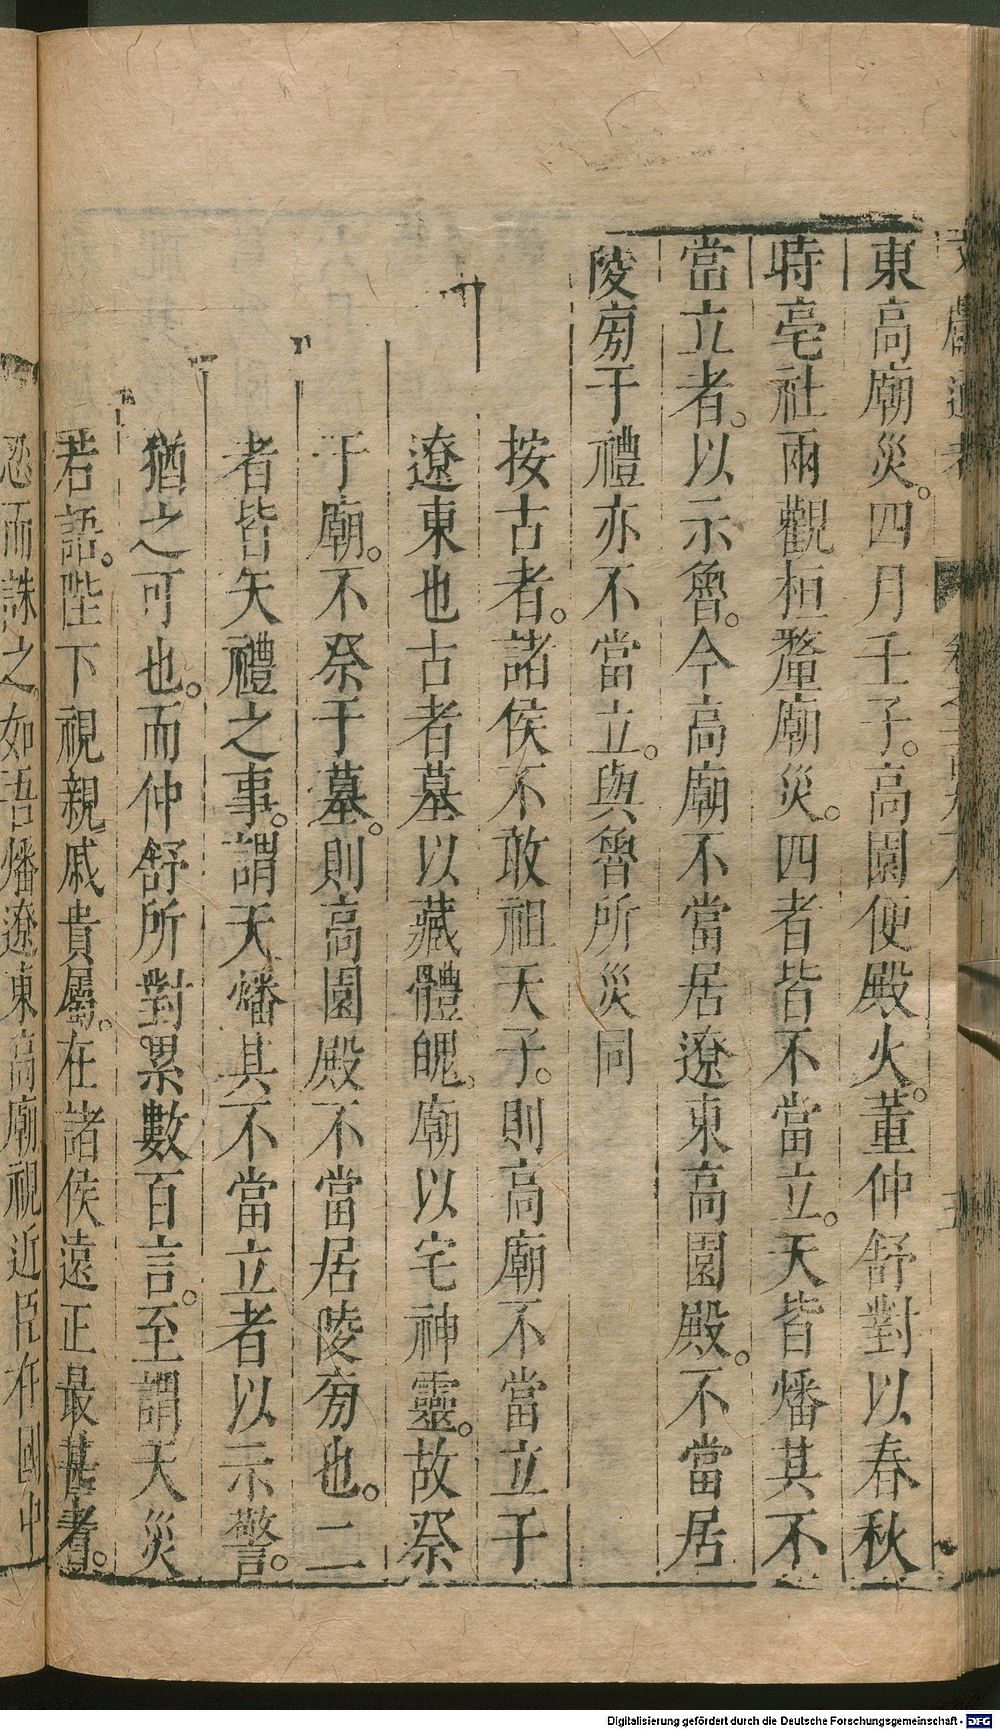 東高廟災。四月壬子。高園便殿火。董仲舒對以春秋
時亳社兩觀桓釐廟災。四者皆不當立。天皆燔其不
當立者。以示魯。今高廟不當居遼東高園殿。不當居
陵旁于禮亦不當立。與魯所災同
按古者。諸侯不敢祖天子。則高廟不當立于
遼東也古者墓以藏體魄。廟以宅神靈。故祭
于廟。不祭于墓。則高園殿不當居陵旁也。二
者皆失禮之事。謂天燔其不當立者以示警。
猶之可也。而仲舒所對。累數百言。至謂天災
若語。陛下視親戚貴屬。在諸侯遠正最甚者。
忍而誅之如吾燔遼東高廟視近臣在國中
Digitalisierung gefördert durch die Deutsche Forschungsgemeinschaft - DFG